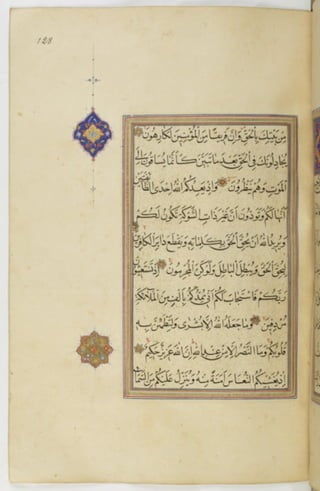 128
مِن بَيْتِكَ بِالْحَقِّ وَإِنَّ فَرِيقًا مِنَ الْمُؤْمِنِينَ لَكَارِهُونَ
يُجَادِلُونَكَ فِي الْحَقِّ بَعْدَ مَا تَبَيَّنَ كَأَنَّمَا يُسَاقُونَ إِلَى
الْمَوْتِ وَهُمْ يَنْظُرُونَ وَإِذْ يَعِدُكُمُ اللَّهُ إِحْدَى الطَّائِفَتَيْنِ
أَنَّهَا لَكُمْ وَتَوَدُّونَ أَنَّ غَيْرَ ذَاتِ الشَّوْكَةِ تَكُونُ لَكُمْ
وَيُرِيدُ اللَّهُ أَنْ يُحِقَّ الْحَقَّ بِكَلِمَاتِهِ وَيَقْطَعَ دَابِرَ الْكَافِرِينَ
لِيُحِقَّ الْحَقَّ وَيُبْطِلَ الْبَاطِلَ وَلَوْ كَرِهَ الْمُجْرِمُونَ إِذْ تَسْتَغِيثُونَ
رَبَّكُمْ فَاسْتَجَابَ لَكُمْ أَنِّي مُمِدُّكُمْ بِأَلْفٍ مِنَ الْمَلَائِكَةِ
مُرْدِفِينَ وَمَا جَعَلَهُ اللَّهُ إِلَّا بُشْرَى وَلِتَطْمَئِنَّ بِهِ
قُلُوبُكُمْ وَمَا النَّصْرُ إِلَّا مِنْ عِنْدِ اللَّهِ إِنَّ اللَّهَ عَزِيزٌ حَكِيمٌ
إِذْ يُغَشِّيكُمُ النُّعَاسَ أَمَنَةً مِنْهُ وَيُنَزِّلُ عَلَيْكُمْ مِنَ السَّمَاءِ